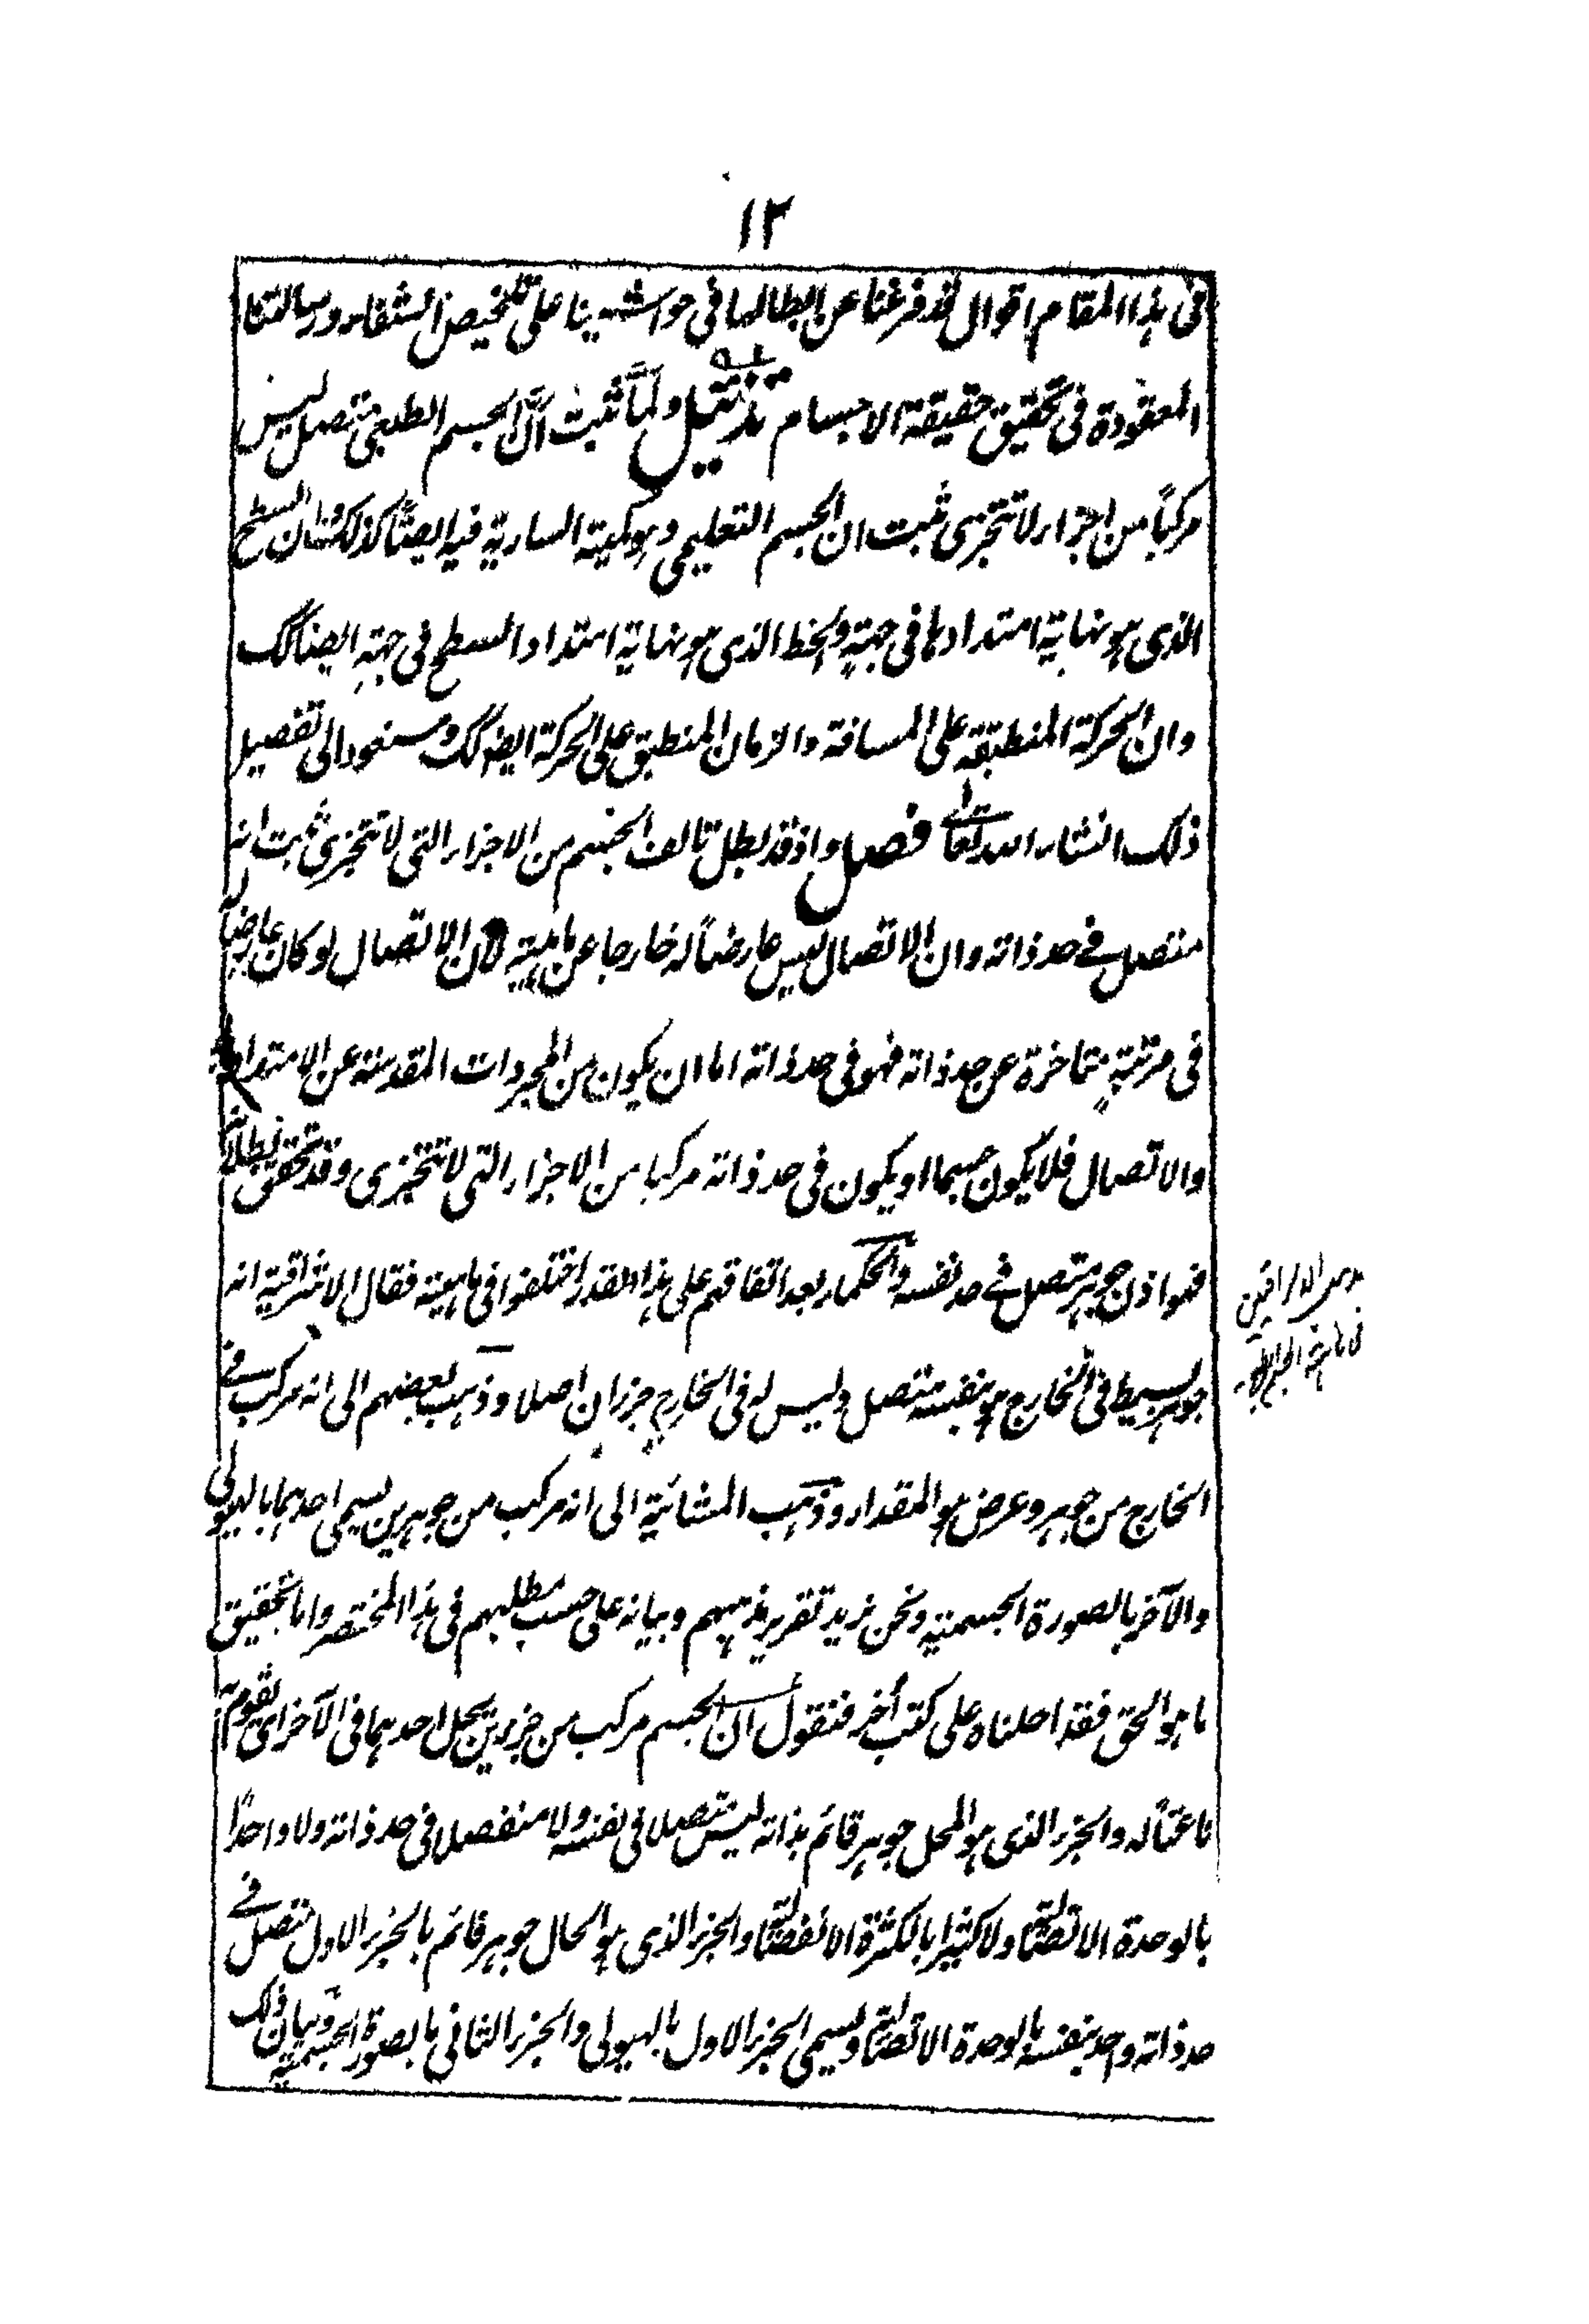 ١٢
فى هذا المقام اقوال قد فرغنا عن ابطالها فى حواشينا على تلخيص الشفاء ورسالتنا
المعقودة فى تحقيق حقيقة الاجسام تذئيل ولما ثبت ان الجسم الطبعى متصل ليس
مركباً من اجزاء لا تتجزى ثبت ان الجسم التعليمى وهو كمية السارية فيه ايضاً كذلك وان السطح
الذى هو نهاية امتدادها فى جهةٍ والخط الذى هو نهاية امتداد السطح فى جهةٍ ايضا كك
وان الحركة المنطبقة على المسافة والزمان المنطبق على الحركة ايضا كك وسنعود الى تفصيل
ذلك انشاء الله تعالى فصل واذ قد بطل تالف الجسم من الاجزاء التى لا تتجزى ثبت انه
متصل فے حد ذاته وان الاتصال ليس عارضاً له خارجا عن ماهيته لان الاتصال لو كان عارضاً له
فى مرتبةٍ متاخرة عن حد ذاته فهو فى حد ذاته اما ان يكون من المجردات المقدسة عن الامتداد
والاتصال فلا يكون جسما او يكون فى حد ذاته مركبا من الاجزاء التى لا تتجزى وقد تحقق بطلانه
فهو اذن جوهر متصل فے حد نفسه والحكماء بعد اتفاقهم على هذا القدر اختلفوا فى ماهيته فقال الاشراقية انه
جوهر بسيط فى الخارج هو بنفسه متصل وليس له فى الخارج جزءان اصلا وذهب بعضهم الى انه مركب فے
الخارج من جوهر وعرض هو المقدار وذهب المشائية الى انه مركب من جوهرين يسمى احدهما بالهيولى
والآخر بالصورة الجسمية ونحن نريد تقرير مذهبهم وبيانه على حسب مطلبهم فى هذا المختصر واما تحقيق
ما هو الحق فقد احلناه على كتب أخر فنقول ان الجسم مركب من جزءين يحل احدهما فى الآخر اى يقوم به
ناعتاً له والجزء الذى هو المحل جوهر قائم بذاته ليس متصلا فى نفسه ولا منفصلا فى حد ذاته ولا واحدًا
بالوحدة الاتصالية ولا كثيرا بالكثرة الانفصالية والجزء الذى هو الحال جوهر قائم بالجزء الاول متصل فے
حد ذاته واحد بنفسه بالوحدة الاتصالية ويسمى الجزء الاول بالهيولى والجزء الثانى بالصورة الجسمية وبيان ذلك